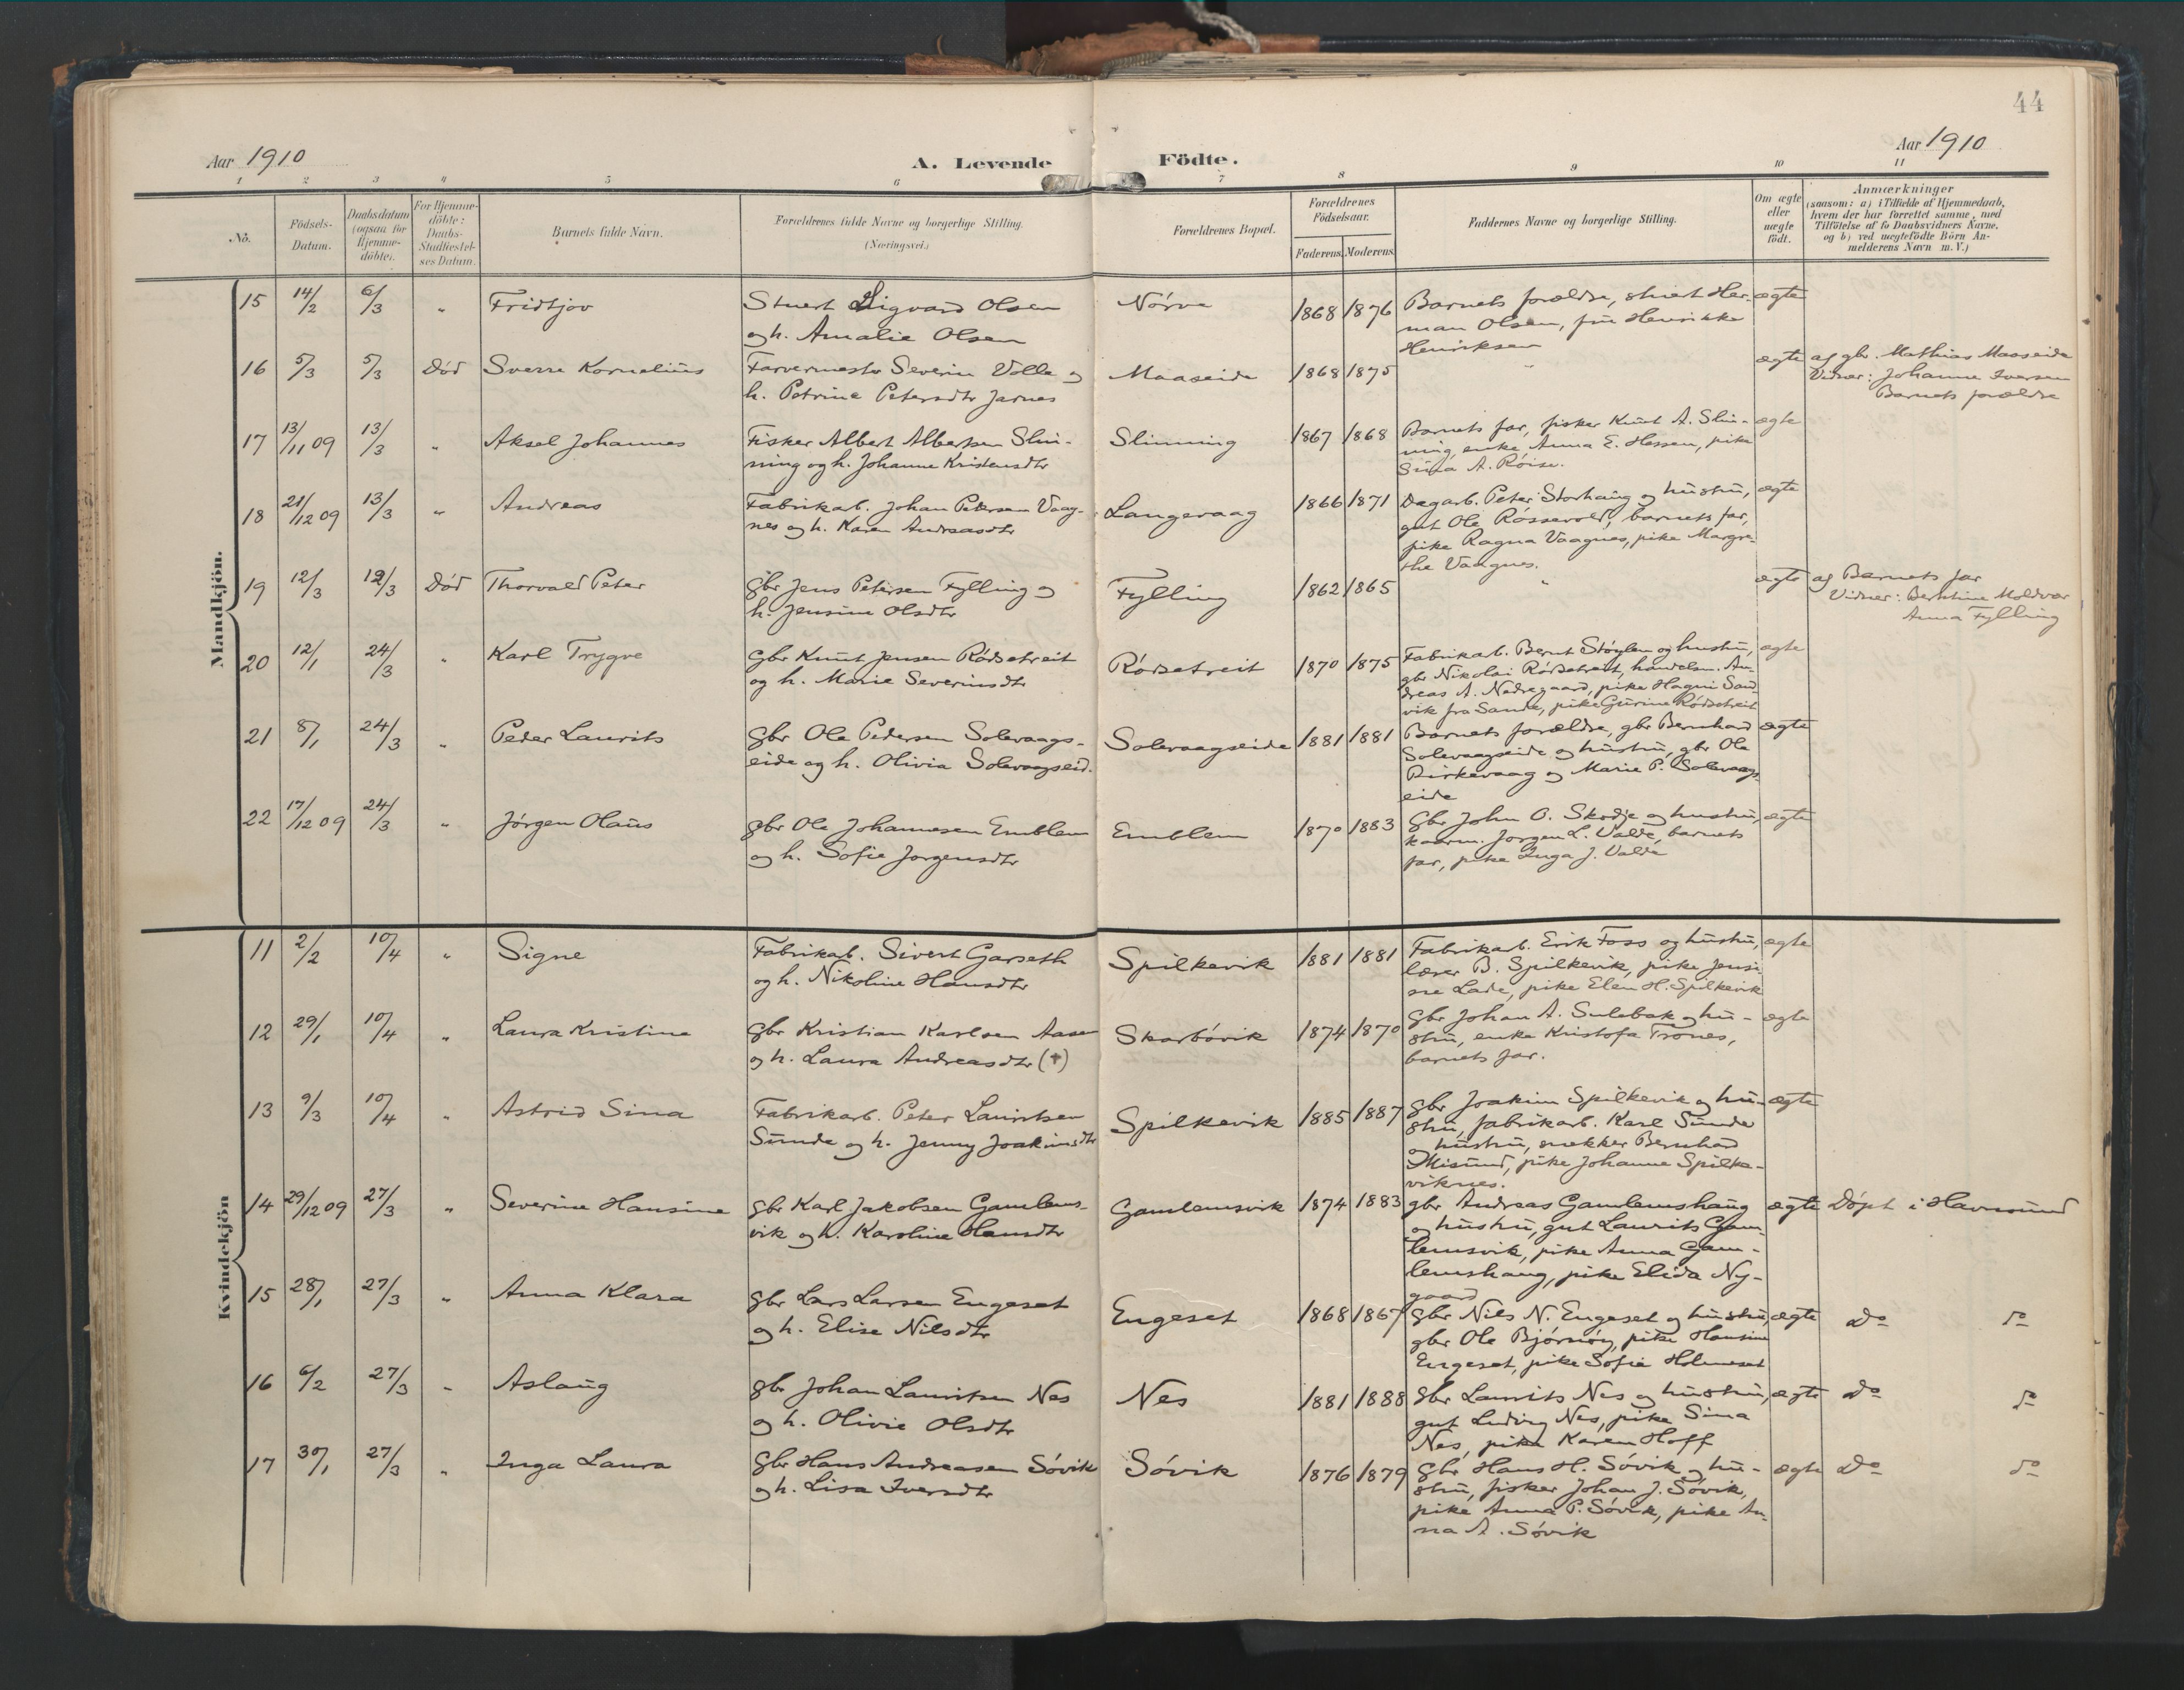 44
Aar 1910
A. Levende Födte.
Aar 1910
1 2 3 4 5 6 7 8 9 10 11
No.
Födsels-
Datum.
Daabsdatum
(ogsaa for
Hjemme-
döbte).
For Hjemme-
döbte:
Daabs-
Stadfæstel-
ses Datum.
Barnets fulde Navn.
Forældrenes fulde Navne og borgerlige Stilling.
(Næringsvei.)
Forældrenes Bopæl.
Forældrenes
Födselsaar.
Faderens. Moderens.
Faddernes Navne og borgerlige Stilling.
Om ægte
eller
uægte
födt.
Anmærkninger
(saasom: a) i Tilfælde af Hjemmedaab,
hvem der har forrettet samme, med
Tilföielse af to Daabsvidners Navne,
og b) ved uægtefödte Börn An-
melderens Navn m. V.)
Mandkjön.
15 14/2 6/3 " Fridtjov
Stuert Sigvard Olsen
og h. Amalie Olsen
Nörve 1868 1876
Barnets forældre, stuert Her-
man Olsen, fru Henrikke
Henriksen
ægte
16 5/3 5/3 Död Sverre Kornelius
Farvermester Severin Volle og
h. Petrine Petersdtr Jarnes
Maaseide 1868 1875 " ægte
af gbr. Mathias Maaseide
Vidner: Johanne Iversen
Barnets forældre
17 13/11 09 13/3 " Aksel Johannes
Fisker Albert Albertsen Slin-
ning og h. Johanne Kristensdtr
Slinning 1867 1868
Barnets far, fisker Knut A. Slin-
ning, enke Anna E. Hessen, pike
Sina A. Röise.
ægte
18 21/12 09 13/3 " Andreas
Fabrikarb. Johan Petersen Vaag-
nes og h. Karen Andreasdtr
Langevaag 1866 1871
Dagarb. Peter Storhaug og hustru,
gut Ole Rössevold, barnets far,
pike Ragna Vaagnes, pike Margre-
the Vaagnes.
ægte
19 12/3 12/3 Död Thorvald Peter
gbr Jens Petersen Fylling og
h. Jensine Olsdtr
Fylling 1862 1865 " ægte
af Barnets far
Vidner: Berthine Moldvær
Anna Fylling
20 12/1 24/3 " Karl Trygve
gbr Knut Jensen Rödsetreit
og h. Marie Severinsdtr
Rödsetreit 1870 1875
Fabrikarb. Bernt Stöylen og hustru,
gbr Nikolai Rödsetreit, handelsm. An-
dreas A. Nedregaard, pike Hagni Sand-
vik fra Sande, pike Gurine Rödsetreit
ægte
21 8/1 24/3 " Peder Laurits
gbr Ole Pedersen Solevaags-
eide og h. Olivia Solevaagseid.
Solevaagseide 1881 1881
Barnets forældre, gbr Bernhard
Solevaagseide og hustru, gbr Ole
Birkevaag og Marie P. Solevaags-
eide
ægte
22 17/12 09 24/3 " Jörgen Olaus
gbr Ole Johannesen Emblem
og h. Sofie Jorgensdtr
Emblem 1870 1883
Gbr John O. Skodje og hustru,
kaarm. Jorgen L. Valde, barnets
far, pike Inga J. Valde
ægte
Kvindekjön
11 2/2 10/4 " Signe
Fabrikarb. Sivert Garseth
og h. Nikoline Hansdtr
Spilkevik 1881 1881
Fabrikarb. Erik Foss og hustru,
lærer B. Spilkevik, pike Jensi-
ne Lade, pike Elen H. Spilkevik
ægte
12 29/1 10/4 " Laura Kristine
gbr Kristian Karlsen Aasen
og h. Laura Andreasdtr (†)
Skarbövik 1874 1870
gbr Johan A. Sulebak og hu-
stru, enke Kristofa Trönes,
barnets far.
ægte
13 9/3 10/4 " Astrid Sina
Fabrikarb. Peter Lauritsen
Sunde og h. Jenny Joakimsdtr
Spilkevik 1885 1887
gbr Joakim Spilkevik og hu-
stru, fabrikarb. Karl Sunde
og hustru, snekker Bernhard
Misund, pike Johanne Spilke-
viknes.
ægte
14 29/12 09 27/3 " Severine Hansine
gbr Karl Jakobsen Gamlems-
vik og h. Karoline Hansdtr
Gamlemsvik 1874 1883
gbr Andreas Gamlemshaug
og hustru, gut Laurits Gam-
lemsvik, pike Anna Gam-
lemshaug, pike Elida Ny-
gaard
ægte Döpt i Havnsund
15 28/1 27/3 " Anna Klara
gbr Lars Larsen Engeset
og h. Elise Nilsdtr
Engeset 1868 1867
gbr Nils N. Engeset og hustru,
gbr Ole Bjórnöy, pike Hansine
Engeset, pike Sofie Holmeset
ægte do do
16 6/2 27/3 " Aslaug
gbr Johan Lauritsen Nes
og h. Olivie Olsdtr
Nes 1881 1888
Gbr Laurits Nes og hustru,
gut Ludvig Nes, pike Sina
Nes, pike Karen Hoff
ægte do do
17 30/1 27/3 " Inga Laura
Gbr Hans Andreasen Sövik
og h. Lisa Iversdtr
Sövik 1876 1879
gbr Hans H. Sövik og hu-
stru, fisker Johan J. Sövik,
pike Anna P. Sövik, pike An-
na A. Sövik
ægte do do